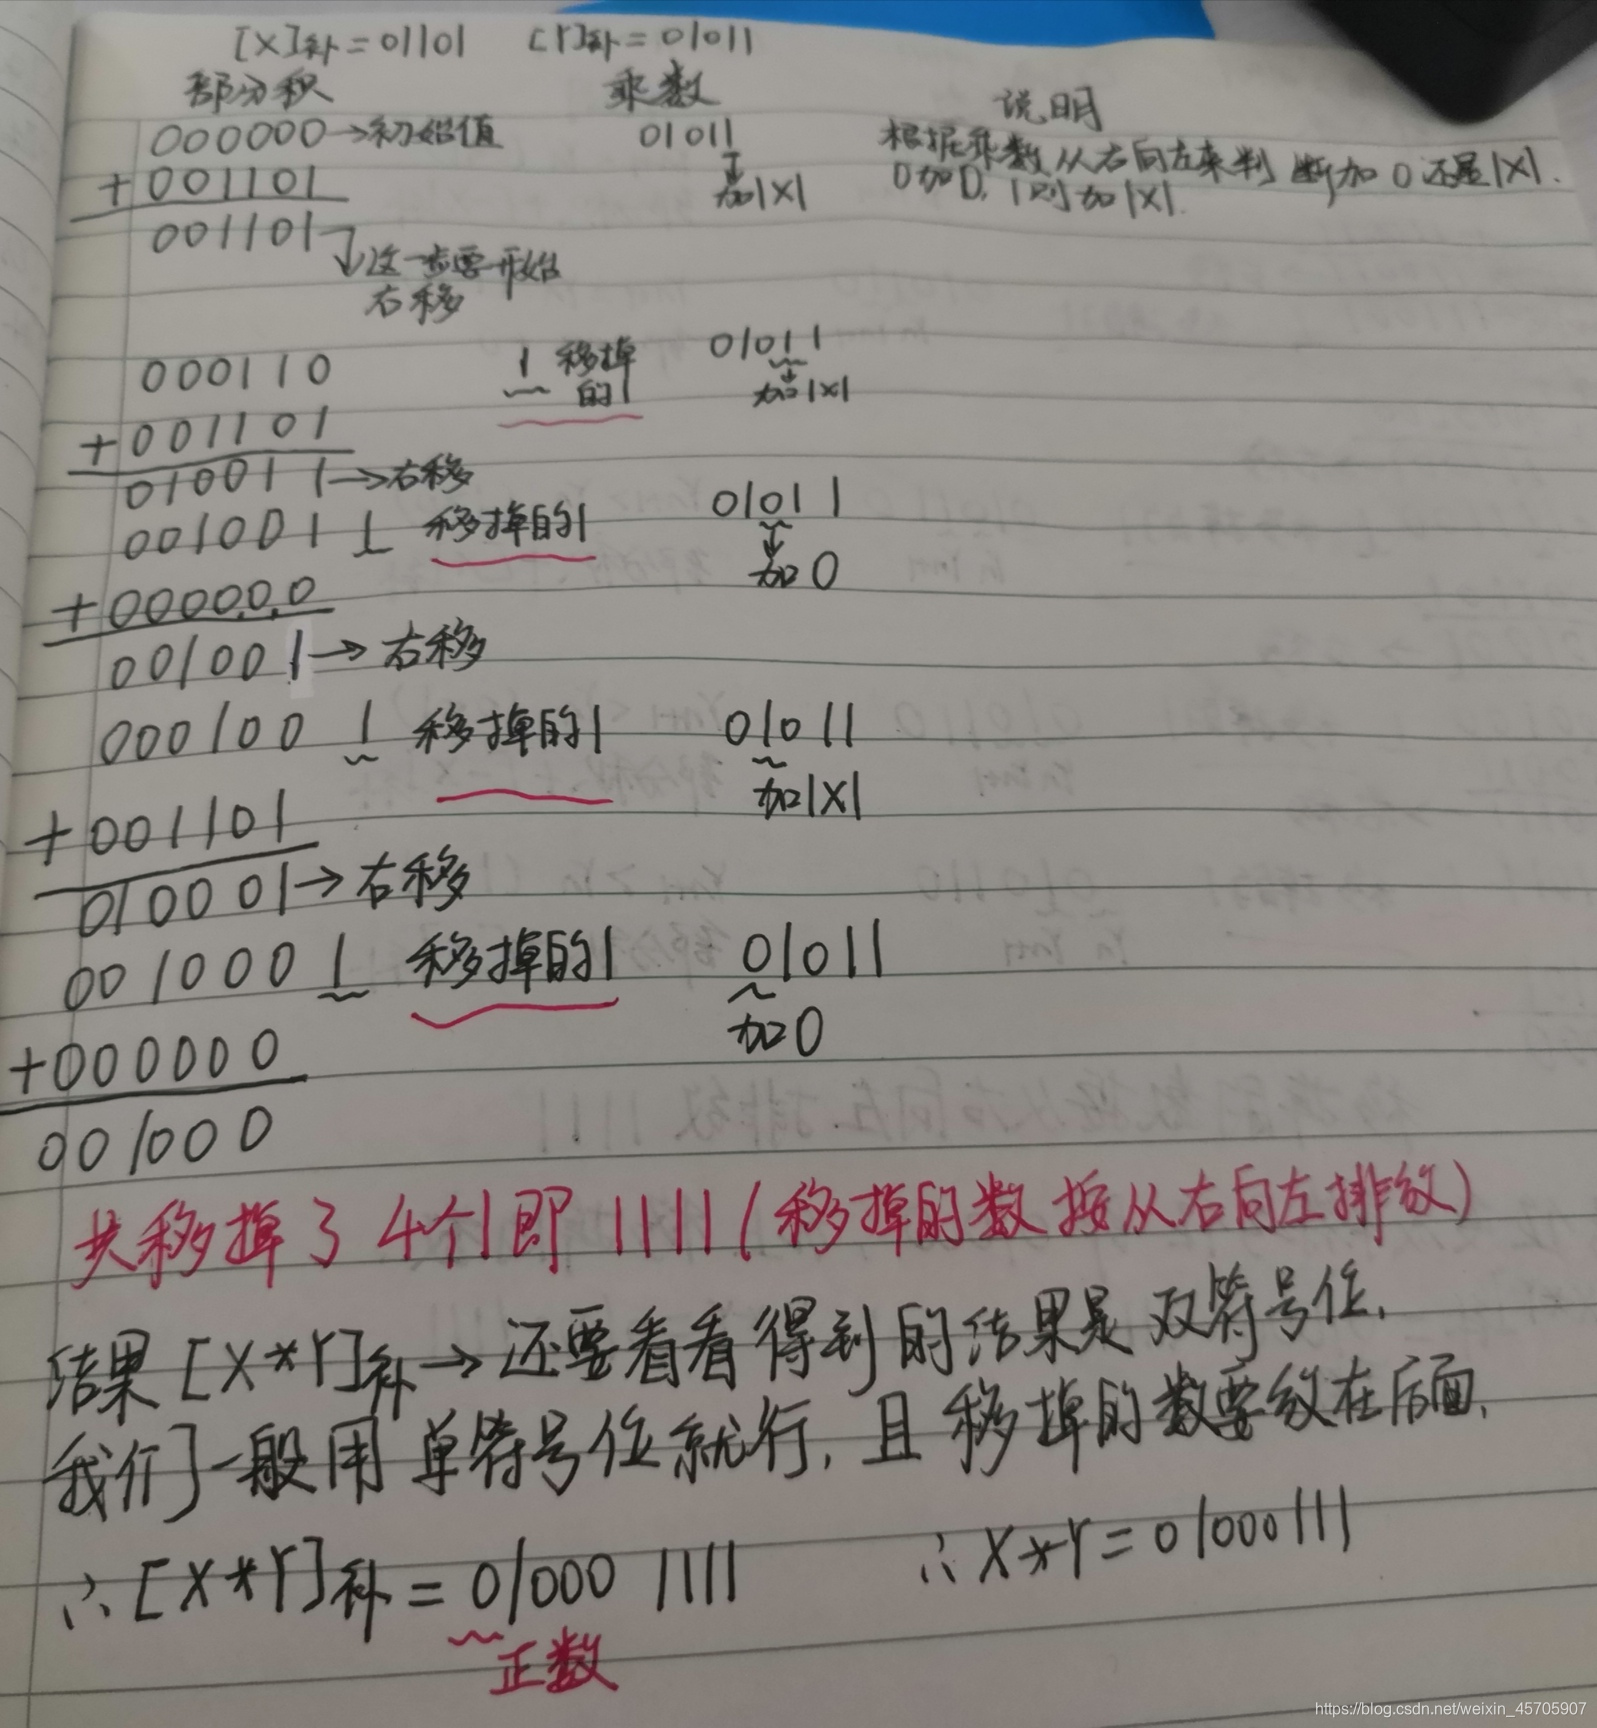 [X]补=01101 [Y]补=01011
部分积 乘数 说明
000000→初始值 01011 根据乘数从右向左来判断加0还是|X|.
+001101 加|X| 0加0,1则加|X|.
001101 这一步要开始
右移
000110 1 移掉的1 01011
加|X|
+001101
010011→右移
001001 1 移掉的1 01011
加0
+000000
001001→右移
000100 1 移掉的1 01011
加|X|
+001101
010001→右移
001000 1 移掉的1 01011
加0
+000000
001000
共移掉了4个1即1111(移掉的数按从右向左排放)
结果[X*Y]补→还要看看得到的结果是双符号位.
我们一般用单符号位就行,且移掉的数要放在后面.
∴[X*Y]补=01000 1111 ∴X*Y=01000111
正数
https://blog.csdn.net/weixin_45705907